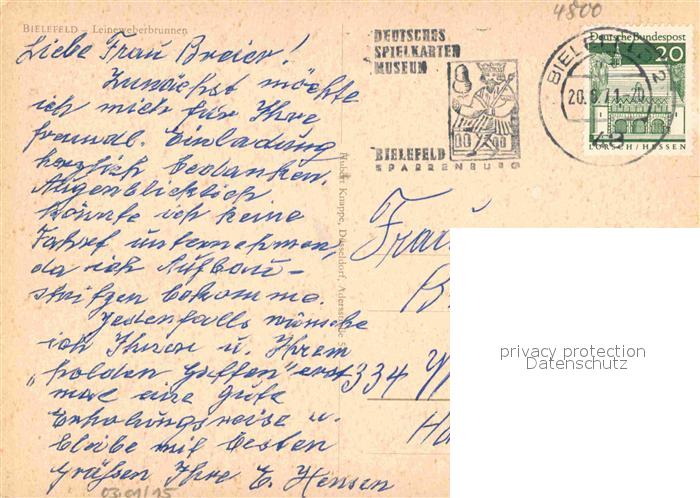 4800
BIELEFELD – Leineweberbrunnen
DEUTSCHES
SPIELKARTEN
MUSEUM
BIELEFELD
SPARRENBURG
BIELEFELD 2
20.8.71-20
Deutsche Bundespost
20
LORSCH/HESSEN
Liebe Frau Breier!
Zunächst möchte
ich mich für Ihre
freundl. Einladung
herzlich bedanken.
Augenblicklich
könnte ich keine
Fahrt unternehmen,
da ich Aufbau-
spritzen bekomme.
Jedenfalls wünsche
ich Ihnen u. Ihrem
„holden Gatten" erst
mal eine gute
Erholungsreise u.
bleibe mit besten
Grüßen Ihre E. Hensen
Hubert Knippe, Düsseldorf, Adersstraße 5
Frau
B
334 W
Ha
privacy protection
Datenschutz